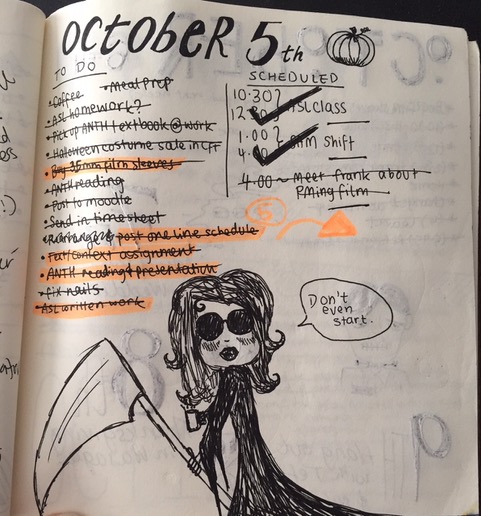 OCTOBER 5th
TO DO
• Coffee • Meal Prep
• ASL homework?
• Pick up ANTH textbook @ work
• Halloween costume sale in CFT
• Buy 35mm film sleeves
• ANTH reading
• Post to moodle
• Send in timesheet
• Rearrange & post one line schedule
• Fat/Context assignment
• ANTH reading & presentation
• Fix nails
• ASL written work
SCHEDULED
10:30 ASL class
1:00 shift
4:00 ~ Meet frank about
PMing film
5
Don't
even
start.